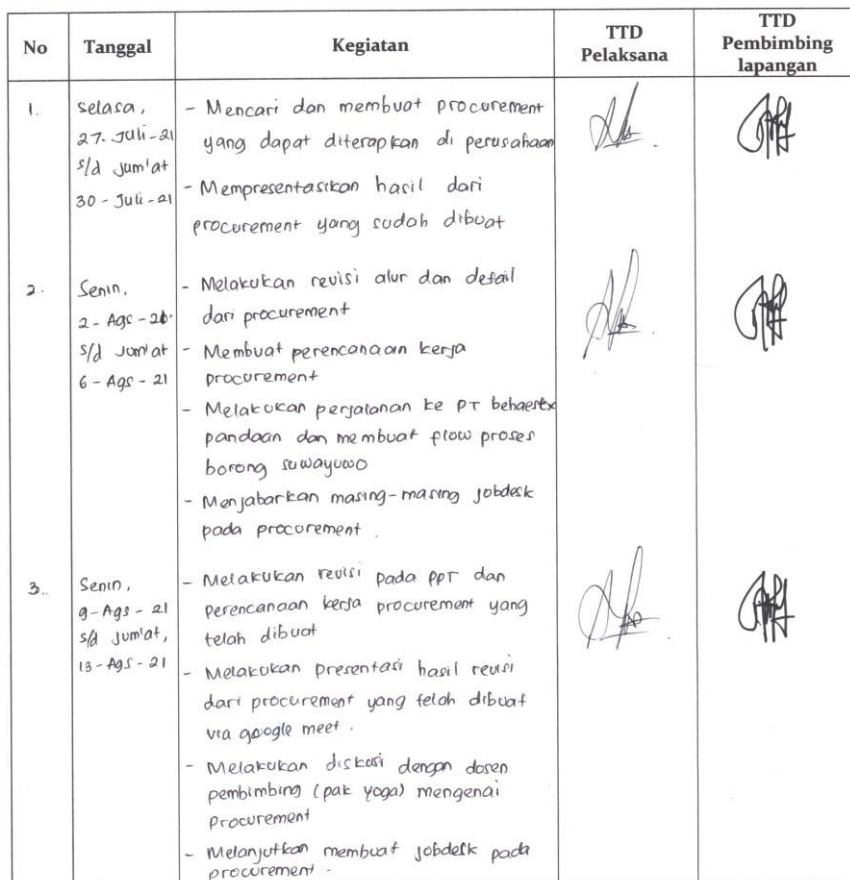 No Tanggal Kegiatan TTD Pelaksana TTD Pembimbing lapangan
1. Selasa, 27-Juli-21 s/d Jum'at 30-Juli-21
- Mencari dan membuat procurement
yang dapat diterapkan di perusahaan
- Mempresentasikan hasil dari
procurement yang sudah dibuat
2. Senin, 2-Ags-21 s/d Jum'at 6-Ags-21
- Melakukan revisi alur dan detail
dari procurement
- Membuat perencanaan kerja
procurement
- Melakukan perjalanan ke PT behaestex
pandaan dan membuat flow proses
borong suwayuwo
- Menjabarkan masing-masing jobdesk
pada procurement.
3. Senin, 9-Ags-21 s/d Jum'at, 13-Ags-21
- Melakukan revisi pada PPT dan
perencanaan kerja procurement yang
telah dibuat
- Melakukan presentasi hasil revisi
dari procurement yang telah dibuat
via google meet.
- Melakukan diskusi dengan dosen
pembimbing (pak yoga) mengenai
procurement
- Melanjutkan membuat jobdesk pada
procurement.